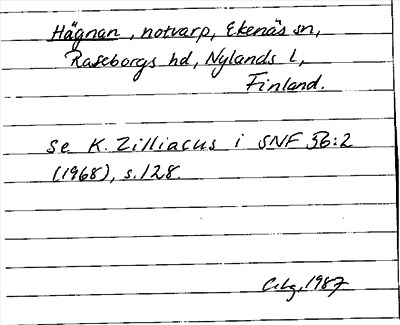 Hägnan, notvarp, Ekenäs sn,
Raseborgs hd, Nylands l,
Finland.
Se K. Zilliacus i SNF 56:2
(1968), s. 128.
1987